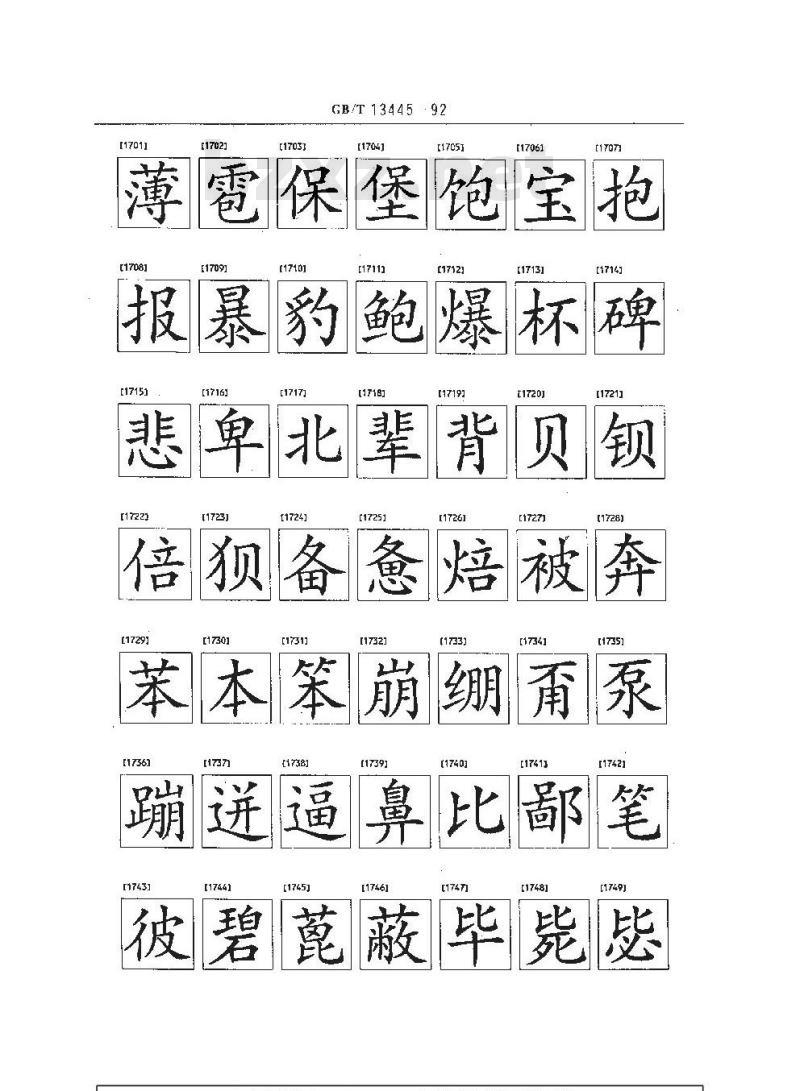 GB/T 13445-92
[1701] [1702] [1703] [1704] [1705] [1706] [1707]
薄 雹 保 堡 饱 宝 抱
[1708] [1709] [1710] [1711] [1712] [1713] [1714]
报 暴 豹 鲍 爆 杯 碑
[1715] [1716] [1717] [1718] [1719] [1720] [1721]
悲 卑 北 辈 背 贝 钡
[1722] [1723] [1724] [1725] [1726] [1727] [1728]
倍 狈 备 惫 焙 被 奔
[1729] [1730] [1731] [1732] [1733] [1734] [1735]
苯 本 笨 崩 绷 甭 泵
[1736] [1737] [1738] [1739] [1740] [1741] [1742]
蹦 迸 逼 鼻 比 鄙 笔
[1743] [1744] [1745] [1746] [1747] [1748] [1749]
彼 碧 蓖 蔽 毕 毙 毖